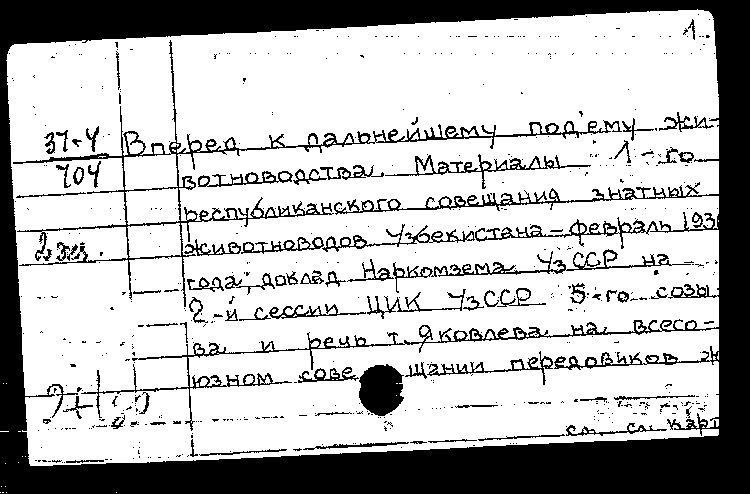 1.
37-4
704
2 экз.
Вперед к дальнейшему под'ему жи-
вотноводства. Материалы 1-го
республиканского совещания знатных
животноводов Узбекистана-февраль 193
года; доклад Наркомзема УзССР на
2-й сессии ЦИК УзССР 5-го созы-
ва и речь т. Яковлева на всесо-
юзном сове щании передовиков ж
см. сл. карт